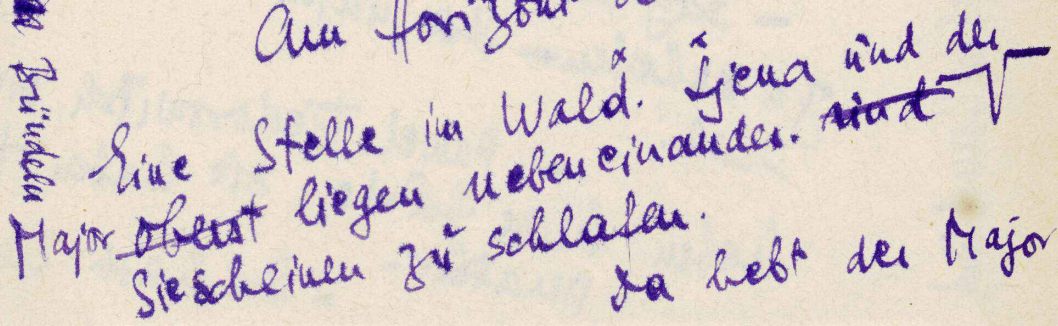 Am Horizont
Eine Stelle im Wald. Ljena und der
Major Oberst liegen nebeneinander. sind
Sie scheinen zu schlafen.
Da hebt der Major
Brüdern